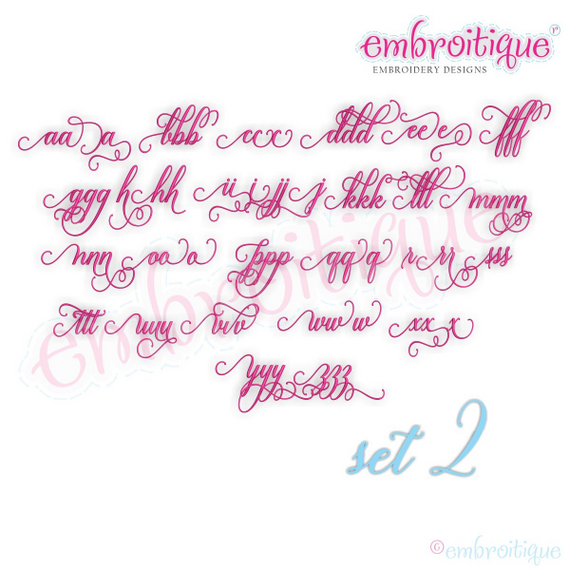 embroitique
EMBROIDERY DESIGNS
aa a bbb ccc ddd ee e fff
ggg h hh ii i jj j kkk lll mmm
nnn oo o ppp qq q r rr sss
ttt uuu vvv ww w xx x
yyy zzz
set 2
embroitique
© embroitique